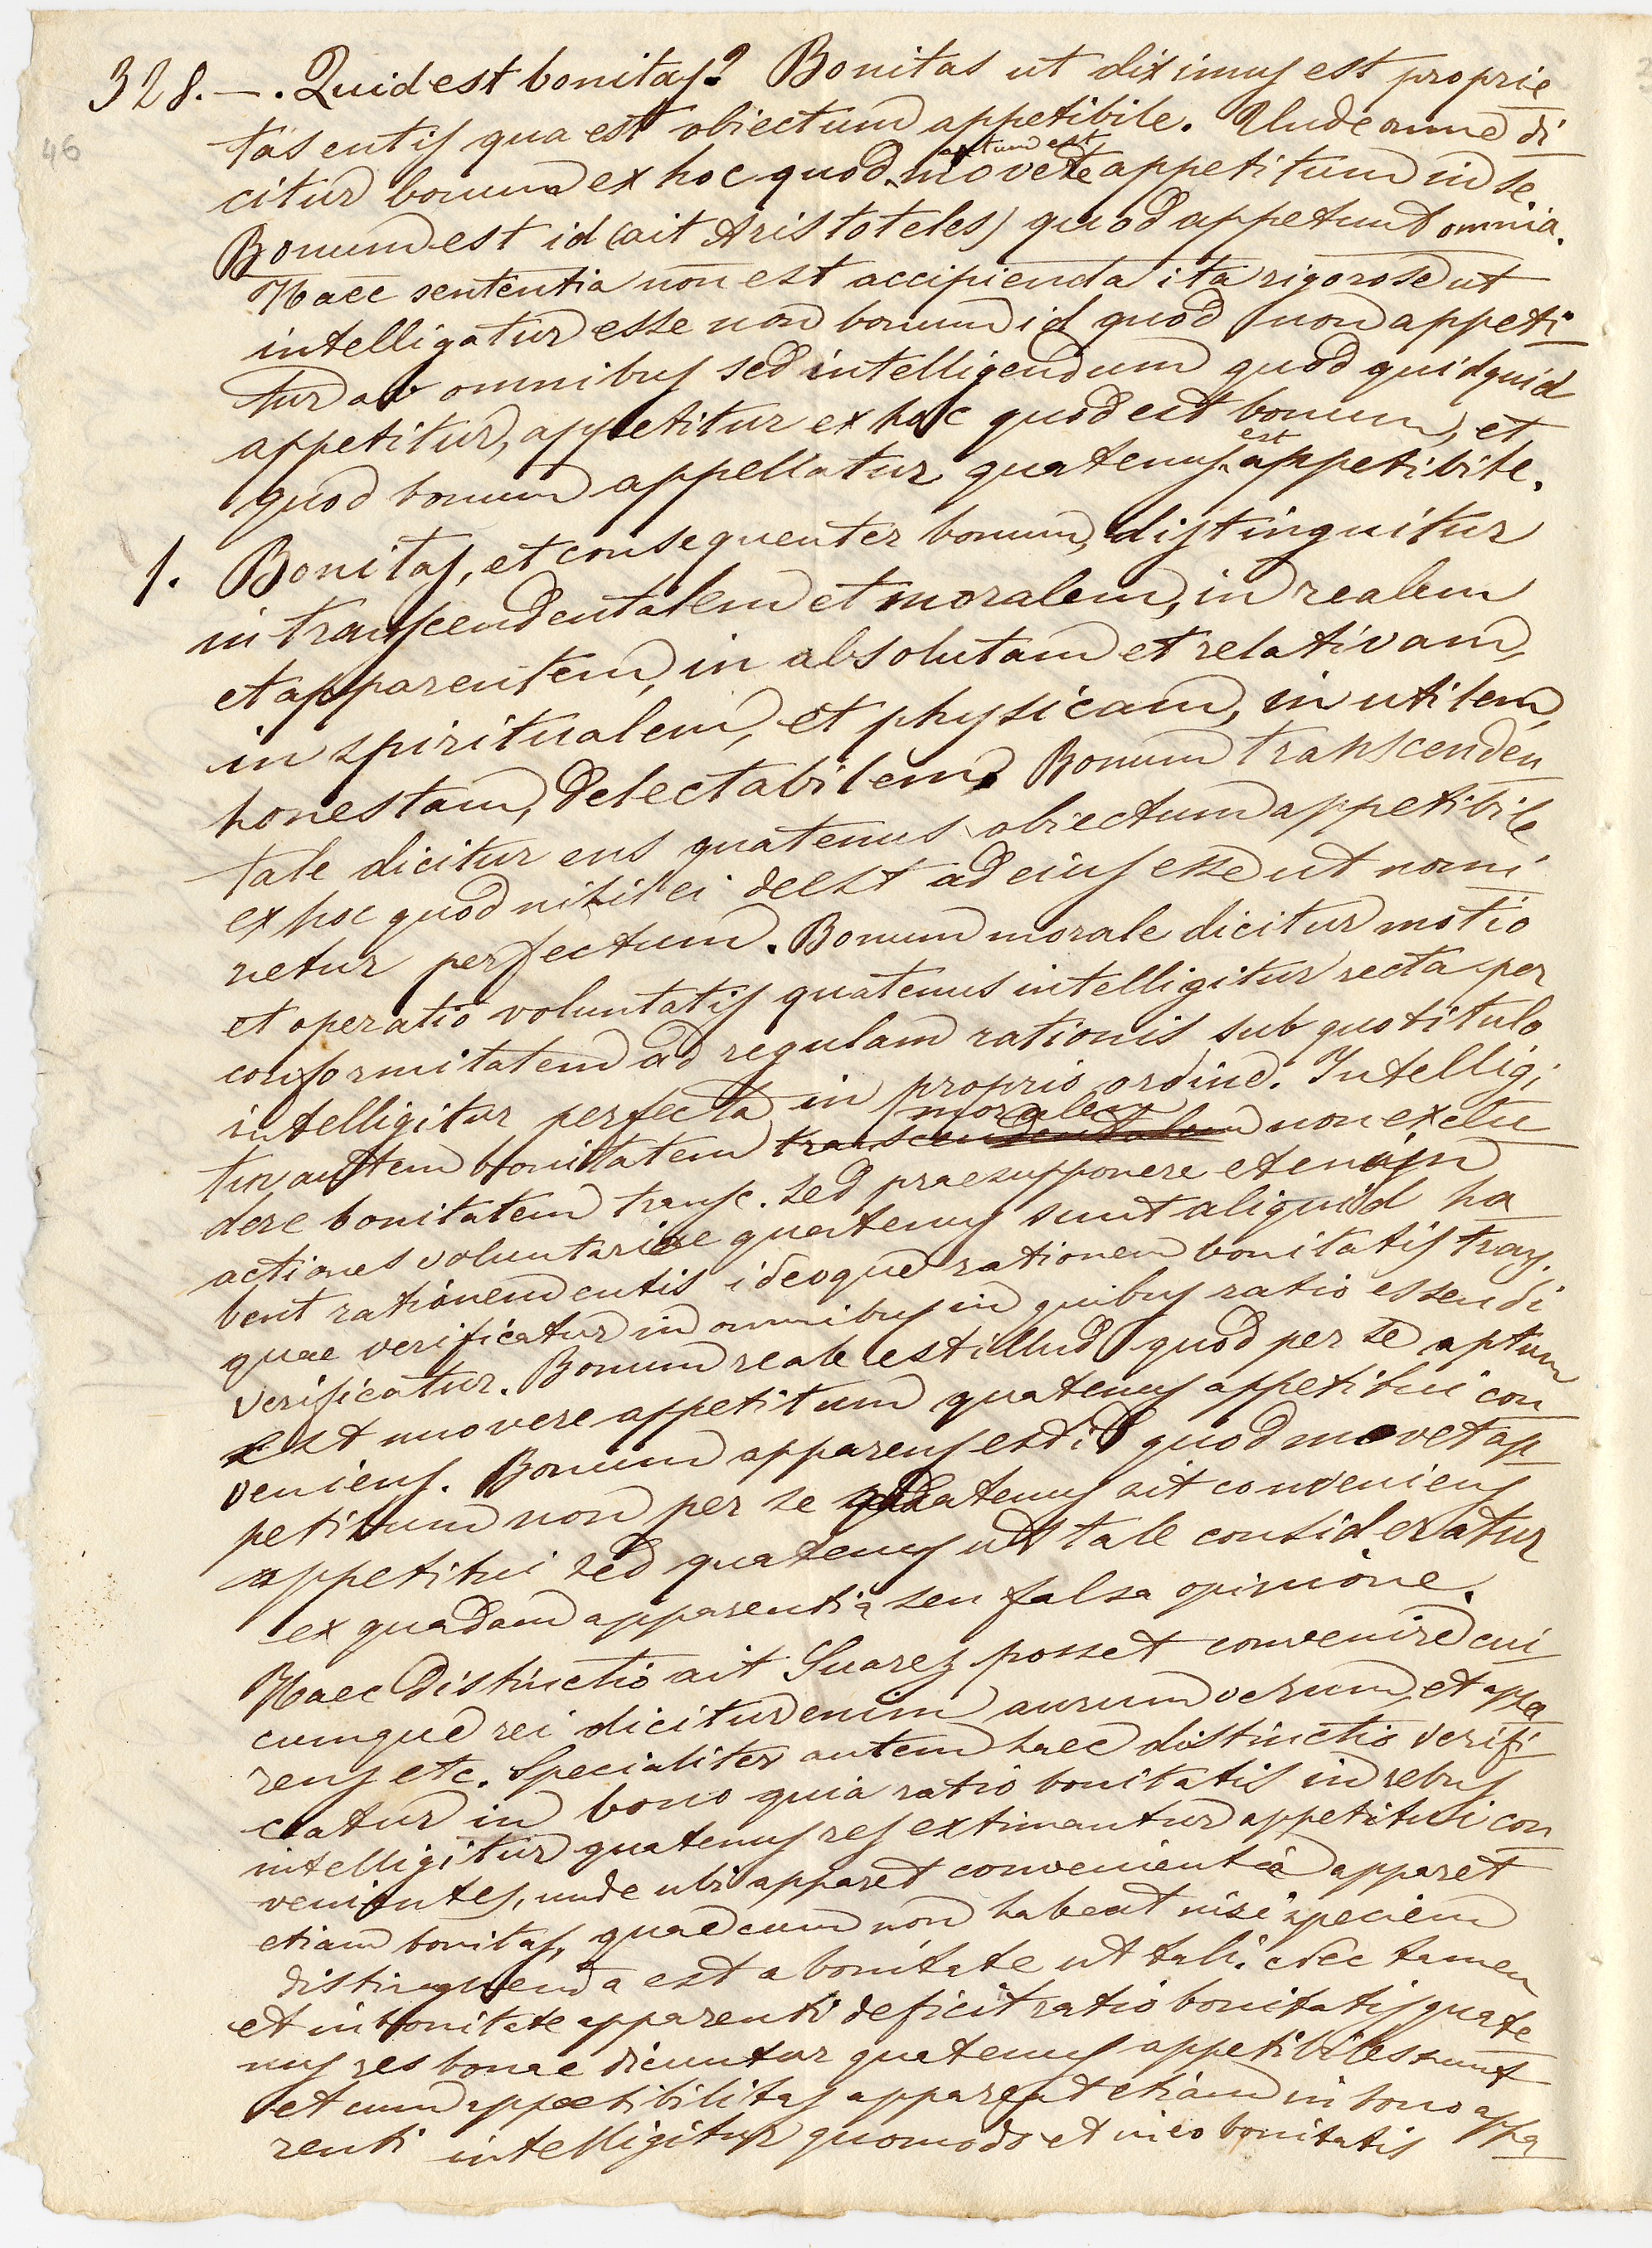 328. — . Quid est bonitas? Bonitas ut diximus est proprie
46
tas entis qua est obiectum appetibile. Unde omne di
citur bonum ex hoc quod aptum est movere appetitum in se
Bonum est id (ait Aristoteles) quod appetunt omnia.
Haec sententia non est accipienda ita rigorose ut
intelligatur esse non bonum id quod non appeti
tur ab omnibus sed intelligendum quod quidquid
appetitur, appetitur ex hoc quod est bonum, et
quod bonum appellatur quatenus est appetibile.
1. Bonitas, et consequenter bonum, distinguitur
in transcendentalem et moralem, in realem
et apparentem, in absolutam et relativam,
in spiritualem, et physicam, in utilem,
honestam, delectabilem. Bonum transcenden
tale dicitur ens quatenus obiectum appetibile
ex hoc quod nihil ei deest ad eius esse ut nomi
netur perfectum. Bonum morale dicitur motio
et operatio voluntatis quatenus intelligitur recta per
conformitatem ad regulam rationis sub quo titulo
intelligitur perfecta in proprio ordine. Intelligi
tur autem bonitatem transcendentalem moralem non exclu
dere bonitatem transc. sed praesupponere etenim
actiones voluntariae quatenus sunt aliquid ha
bent rationem entis ideoque rationem bonitatis trans.
quae verificatur in omnibus in quibus ratio essendi
verificatur. Bonum reale est illud quod per se aptum
est movere appetitum quatenus appetitui con
veniens. Bonum apparens est id quod movet ap
petitum non per se quatenus sit conveniens
appetitui sed quatenus ut tale consideratur
ex quadam apparentia seu falsa opinione.
Haec distinctio ait Suarez posset convenire cui
cumque rei dicitur enim aurum verum, et appa
rens etc. Specialiter autem haec distinctio verifi
catur in bono quia ratio bonitatis in rebus
intelligitur quatenus res extimantur appetitui con
venientes, unde ubi apparet convenientia apparet
etiam bonitas, quae cum non habeat nisi speciem
distinguenda est a bonitate ut tali. Nec tamen
et in bonitate apparenti deficit ratio bonitatis quate
nus res bonae dicuntur quatenus appetibiles sunt
et cum appetibilitas appareat etiam in bono appa
renti intelligitur quomodo et in eo bonitatis